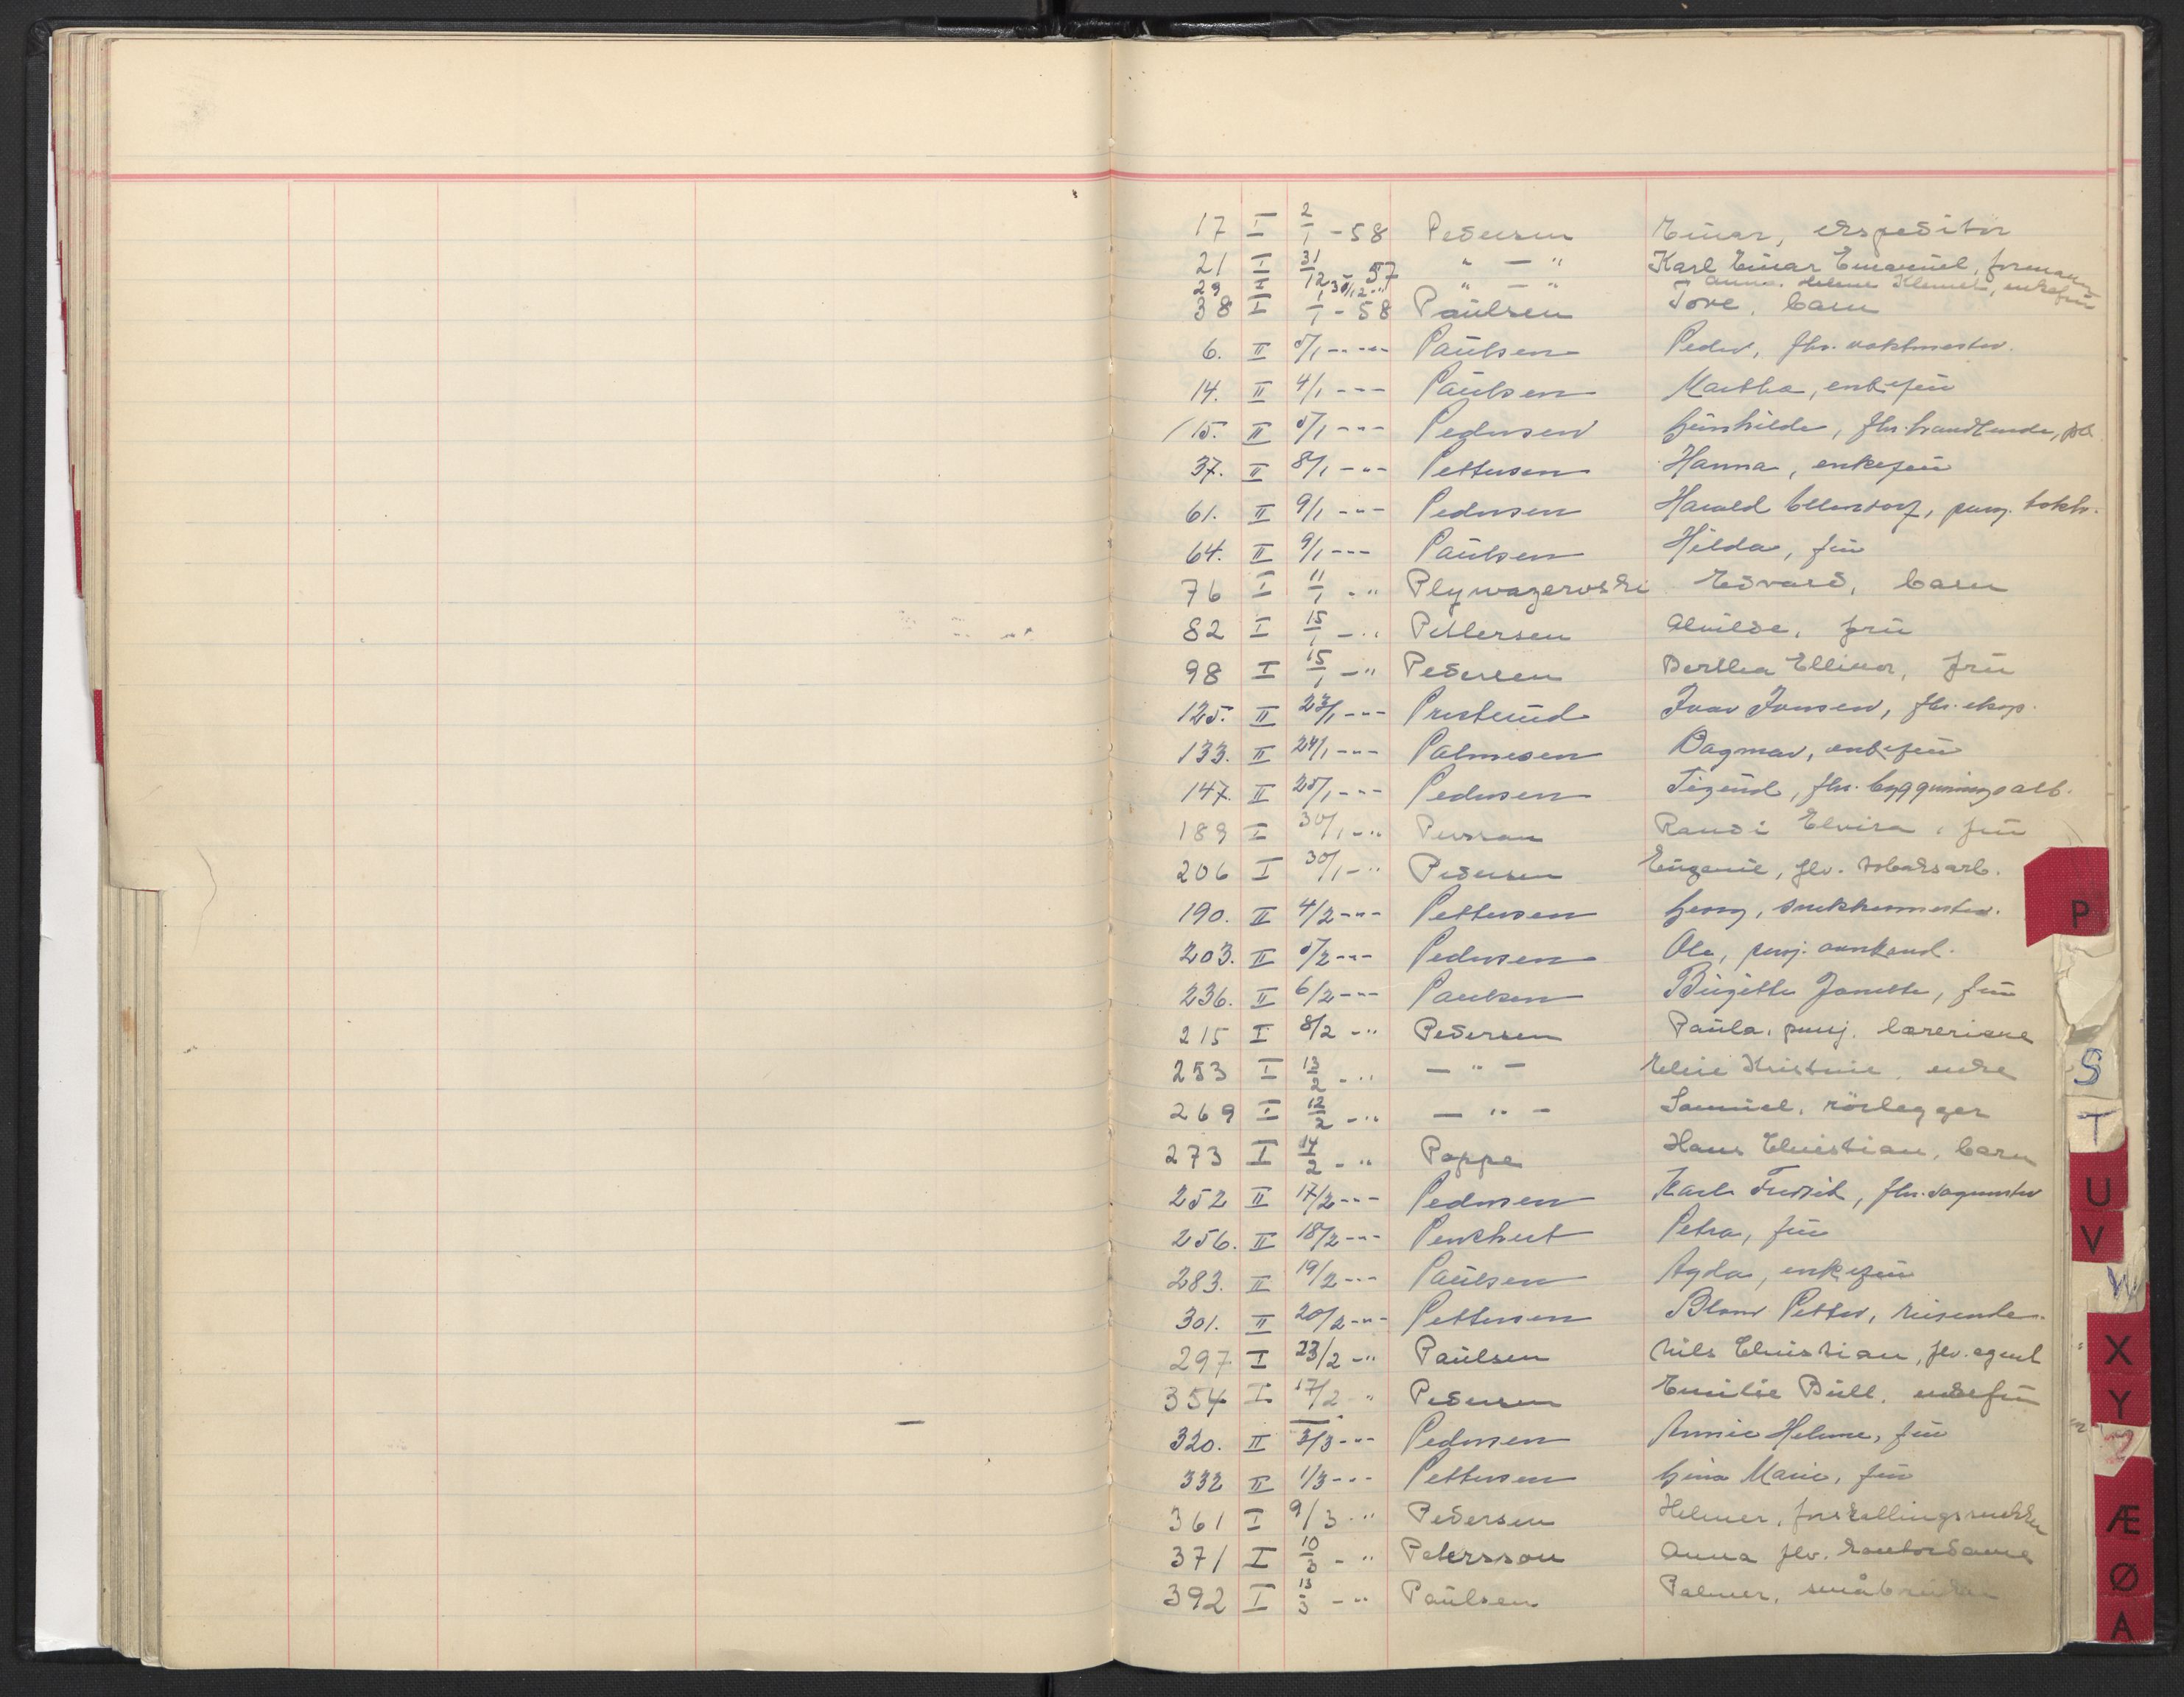 17 I 2/1 - 58 Pedersen Einar, ekspeditør
21 I 31/12 57 " — " Karl Einar Emanuel, formann
29 I 30/12 - " " — " Anna Helene Klemet, enkefrü
38 I 1/1 - 58 Paülsen Tove, barn
6. II 5/1 - " - Paülsen Peder, fhv. vaktmester.
14. II 4/1 - " - Paülsen Martha, enkefrü
15. II 5/1 - " - Pedersen Günhilde, fhv. handlende,
37. II 8/1 - " - Pettersen Hanna, enkefrü
61. II 9/1 - " - Pedersen Harald Ellendorf, pensj.
64. II 9/1 - " - Paülsen Hilda, frü
76 I 11/1 - " Plywazerwski Edvard, barn
82 I 15/1 - " Pettersen Alvilde, frü
98 I 15/1 - " Pedersen Berthea Ellinor, frü
125. II 23/1 - " - Presterüd Ivar Jensen, fhv. eksp.
133. II 24/1 - " - Palmesen Dagmar, enkefrü
147. II 25/1 - " - Pedersen Sigürd, fhv. bygningsarb.
189 I 30/1 - " Persson Randi Elvira, frü
206 I 30/1 - " Pedersen Eügenie, fhv. tobaksarb.
190. II 4/2 - " - Pettersen Georg, snekkermester.
203. II 5/2 - " - Pedersen Ole, pensj.
236. II 6/2 - " - Paulsen Birgitte Janette, frü
215 I 8/2 - " Pedersen Paüla, pensj. lærerinne
253 I 13/2 - " — " — Eline Kristine, enke
269 I 12/2 - " — " — Samüel, rörlegger
273 I 14/2 - " Poppe Hans Christian, barn
252 II 17/2 - " - Pedersen Karl Fredrik, fhv.
256. II 18/2 - " - Penchert Petra, frü
283. II 19/2 - " - Paülsen Agda, enkefrü
301. II 20/2 - " - Pettersen Petter, reisende.
297 I 23/2 - " Paülsen Nils Christian, fhv. agent
354 I 17/2 " Pedersen Emilie Büll, enkefrü
320. II 3/3 - " - Pedersen Annie Helene, frü
332 II 1/3 - " - Pettersen Gina Marie, frü
361 I 9/3 - " Pedersen Helmer, forskallingssnekker
371 I 10/3 - " Petersson Anna fhv. kontordame
392 I 13/3 - " Paülsen Palmer, småbrüker
P
S
T
U
V
W
X
Y
Æ
Ø
A